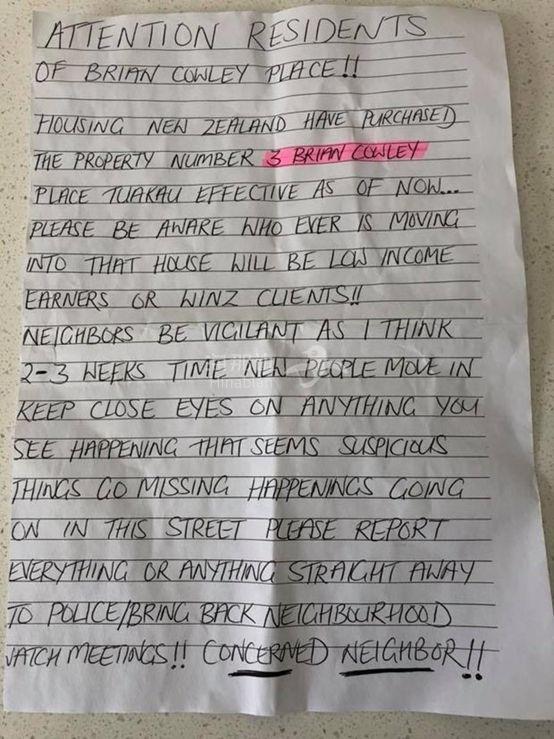 ATTENTION RESIDENTS
OF BRIAN COWLEY PLACE!!
HOUSING NEW ZEALAND HAVE PURCHASED
THE PROPERTY NUMBER 3 BRIAN COWLEY
PLACE TUAKAU EFFECTIVE AS OF NOW...
PLEASE BE AWARE WHO EVER IS MOVING
INTO THAT HOUSE WILL BE LOW INCOME
EARNERS OR WINZ CLIENTS!!
NEIGHBORS BE VIGILANT AS I THINK
2-3 WEEKS TIME NEW PEOPLE MOVE IN
KEEP CLOSE EYES ON ANYTHING YOU
SEE HAPPENING THAT SEEMS SUSPICIOUS
THINGS GO MISSING HAPPENINGS GOING
ON IN THIS STREET PLEASE REPORT
EVERYTHING OR ANYTHING STRAIGHT AWAY
TO POLICE/BRING BACK NEIGHBOURHOOD
WATCH MEETINGS!! CONCERNED NEIGHBOR!!